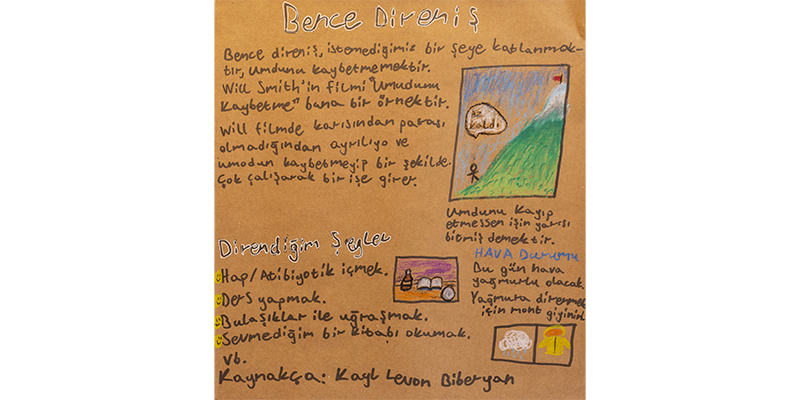 Bence Direniş
Bence direniş, istemediğimiz bir şeye katlanmak-
tır, Umdunu kaybetmemektir.
Will Smith'in filmi "Umudunu
Kaybetme" buna bir örnektir.
Will filmde karısından parası
olmadığından ayrılıyo ve
umodun kaybetmeyip bir şekilde
Çok çalışarak bir işe girer.
az
kaldı
Umdunu Kayıp
etmessen işin yarısı
bitmiş demektir.
Direndiğim Şeyler
Hap/Atibiyotik içmek.
Ders yapmak.
Bulaşıklar ile uğraşmak.
Sevmediğim bir kitabı okumak.
vb.
Kaynakça: Kayl Levon Biberyan
HAVA Durumu
Bu gün hava
yağmurlu olacak.
Yağmura direnmek
için mont giyinin